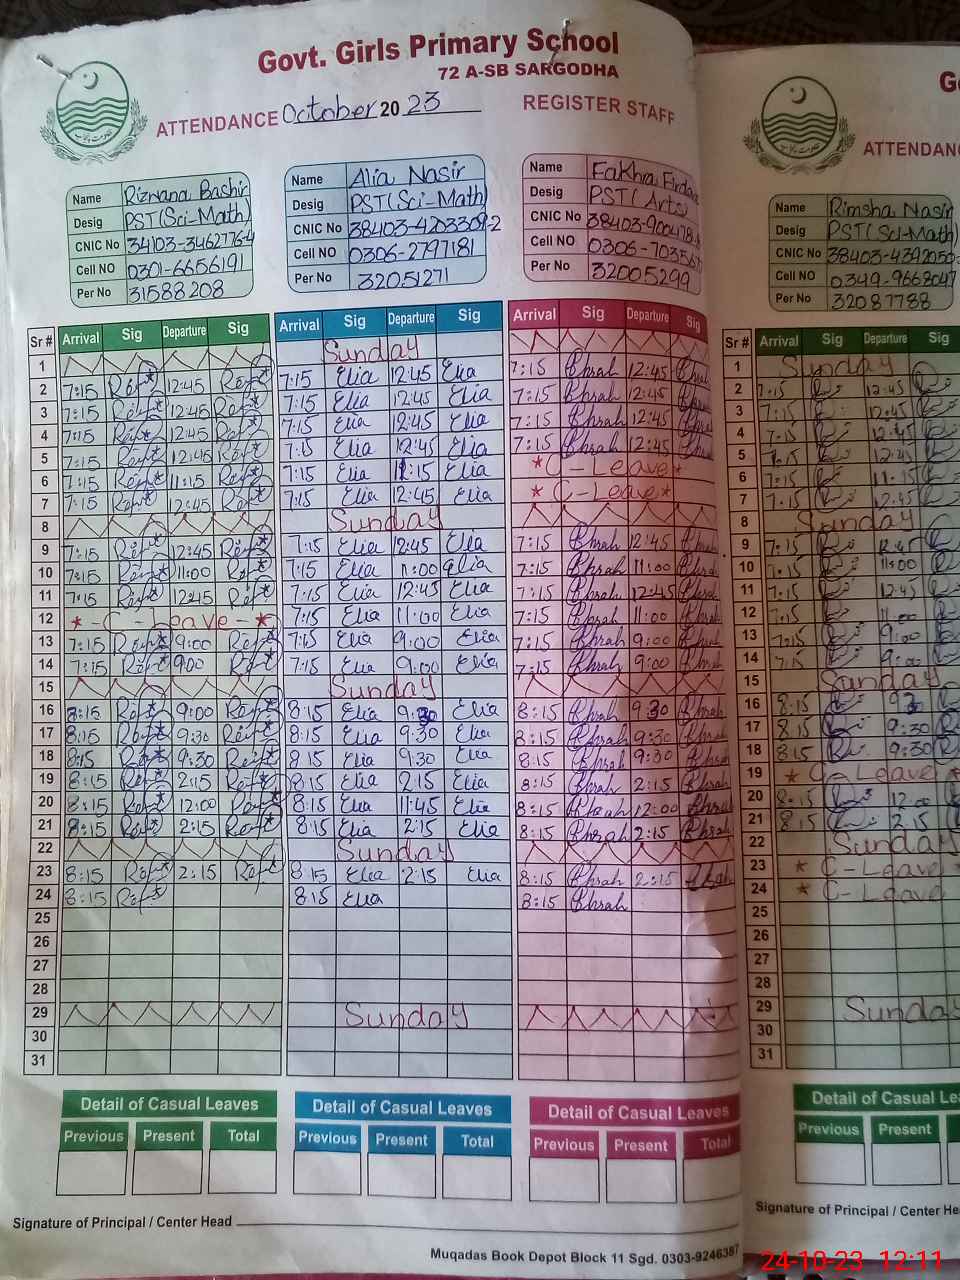 Govt. Girls Primary School
72 A-SB SARGODHA
ATTENDANCE October 20 23 REGISTER STAFF
ATTENDANC
Name Rizwana Bashir
Desig PST(Sci-Math)
CNIC No 34103-3462776-4
Cell NO 0301-6656191
Per No 31588208
Name Alia Nasir
Desig PST(Sci-Math)
CNIC No 38403-4203309-2
Cell NO 0306-2797181
Per No 32051271
Name Fakhra Firdous
Desig PST(Arts)
CNIC No 38403-900478
Cell NO 0306-703567
Per No 32005299
Name Rimsha Nasir
Desig PST(Sci-Math)
CNIC No 38403-4392050
Cell NO 0349-9668047
Per No 32087788
Sr # Arrival Sig Departure Sig Arrival Sig Departure Sig Arrival Sig Departure Sig Sr # Arrival Sig Departure Sig
1 Sunday 1 Sunday
2 7:15 12:45 7:15 Elia 12:45 Elia 7:15 12:45 2 7:15 12:45
3 7:15 12:45 7:15 Elia 12:45 Elia 7:15 12:45 3 7:15 12:45
4 7:15 12:45 7:15 Elia 12:45 Elia 7:15 12:45 4 7:15 12:45
5 7:15 12:45 7:15 Elia 12:45 Elia 7:15 12:45 5 7:15 12:45
6 7:15 11:15 7:15 Elia 11:15 Elia * C-Leave * 6 7:15 11:15
7 7:15 12:45 7:15 Elia 12:45 Elia * C-Leave * 7 7:15 12:45
8 Sunday 8 Sunday
9 7:15 12:45 7:15 Elia 12:45 Elia 7:15 12:45 9 7:15 12:45
10 7:15 11:00 7:15 Elia 11:00 Elia 7:15 11:00 10 7:15 11:00
11 7:15 12:45 7:15 Elia 12:45 Elia 7:15 12:45 11 7:15 12:45
12 * - C - Leave - * 7:15 Elia 11:00 Elia 7:15 11:00 12 7:15 11:00
13 7:15 9:00 7:15 Elia 9:00 Elia 7:15 9:00 13 7:15 9:00
14 7:15 9:00 7:15 Elia 9:00 Elia 7:15 9:00 14 7:15 9:00
15 Sunday 15 Sunday
16 8:15 9:00 8:15 Elia 9:30 Elia 8:15 9:30 16 8:15 9:30
17 8:15 9:30 8:15 Elia 9:30 Elia 8:15 9:30 17 8:15 9:30
18 8:15 9:30 8:15 Elia 9:30 Elia 8:15 9:30 18 8:15 9:30
19 8:15 2:15 8:15 Elia 2:15 Elia 8:15 2:15 19 * C-Leave *
20 8:15 12:00 8:15 Elia 11:45 Elia 8:15 12:00 20 8:15 12:00
21 8:15 2:15 8:15 Elia 2:15 Elia 8:15 2:15 21 8:15 2:15
22 Sunday 22 Sunday
23 8:15 2:15 8:15 Elia 2:15 Elia 8:15 2:15 23 * C-Leave *
24 8:15 8:15 Elia 8:15 24 * C-Leave
25 25
26 26
27 27
28 28
29 Sunday 29 Sunday
30 30
31 31
Detail of Casual Leaves Detail of Casual Leaves Detail of Casual Leaves Detail of Casual Le
Previous Present Total Previous Present Total Previous Present Total Previous Present
Signature of Principal / Center Head
Signature of Principal / Center He
Muqadas Book Depot Block 11 Sgd. 0303-9246387
24-10-23 12:11